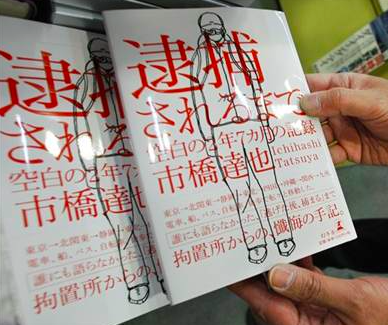 逮捕
されるまで
空白の2年7カ月の記録
市橋達也
Ichihashi
Tatsuya
東京→北関東→静岡→
電車、船、バス、自転
誰にも語らなかった
拘置所からの、懺悔の手記。
逮捕
される
空白の2年
市橋達也
東京→北関東→静岡
電車、船、バス、自転
誰にも語らなかった
拘置所からの